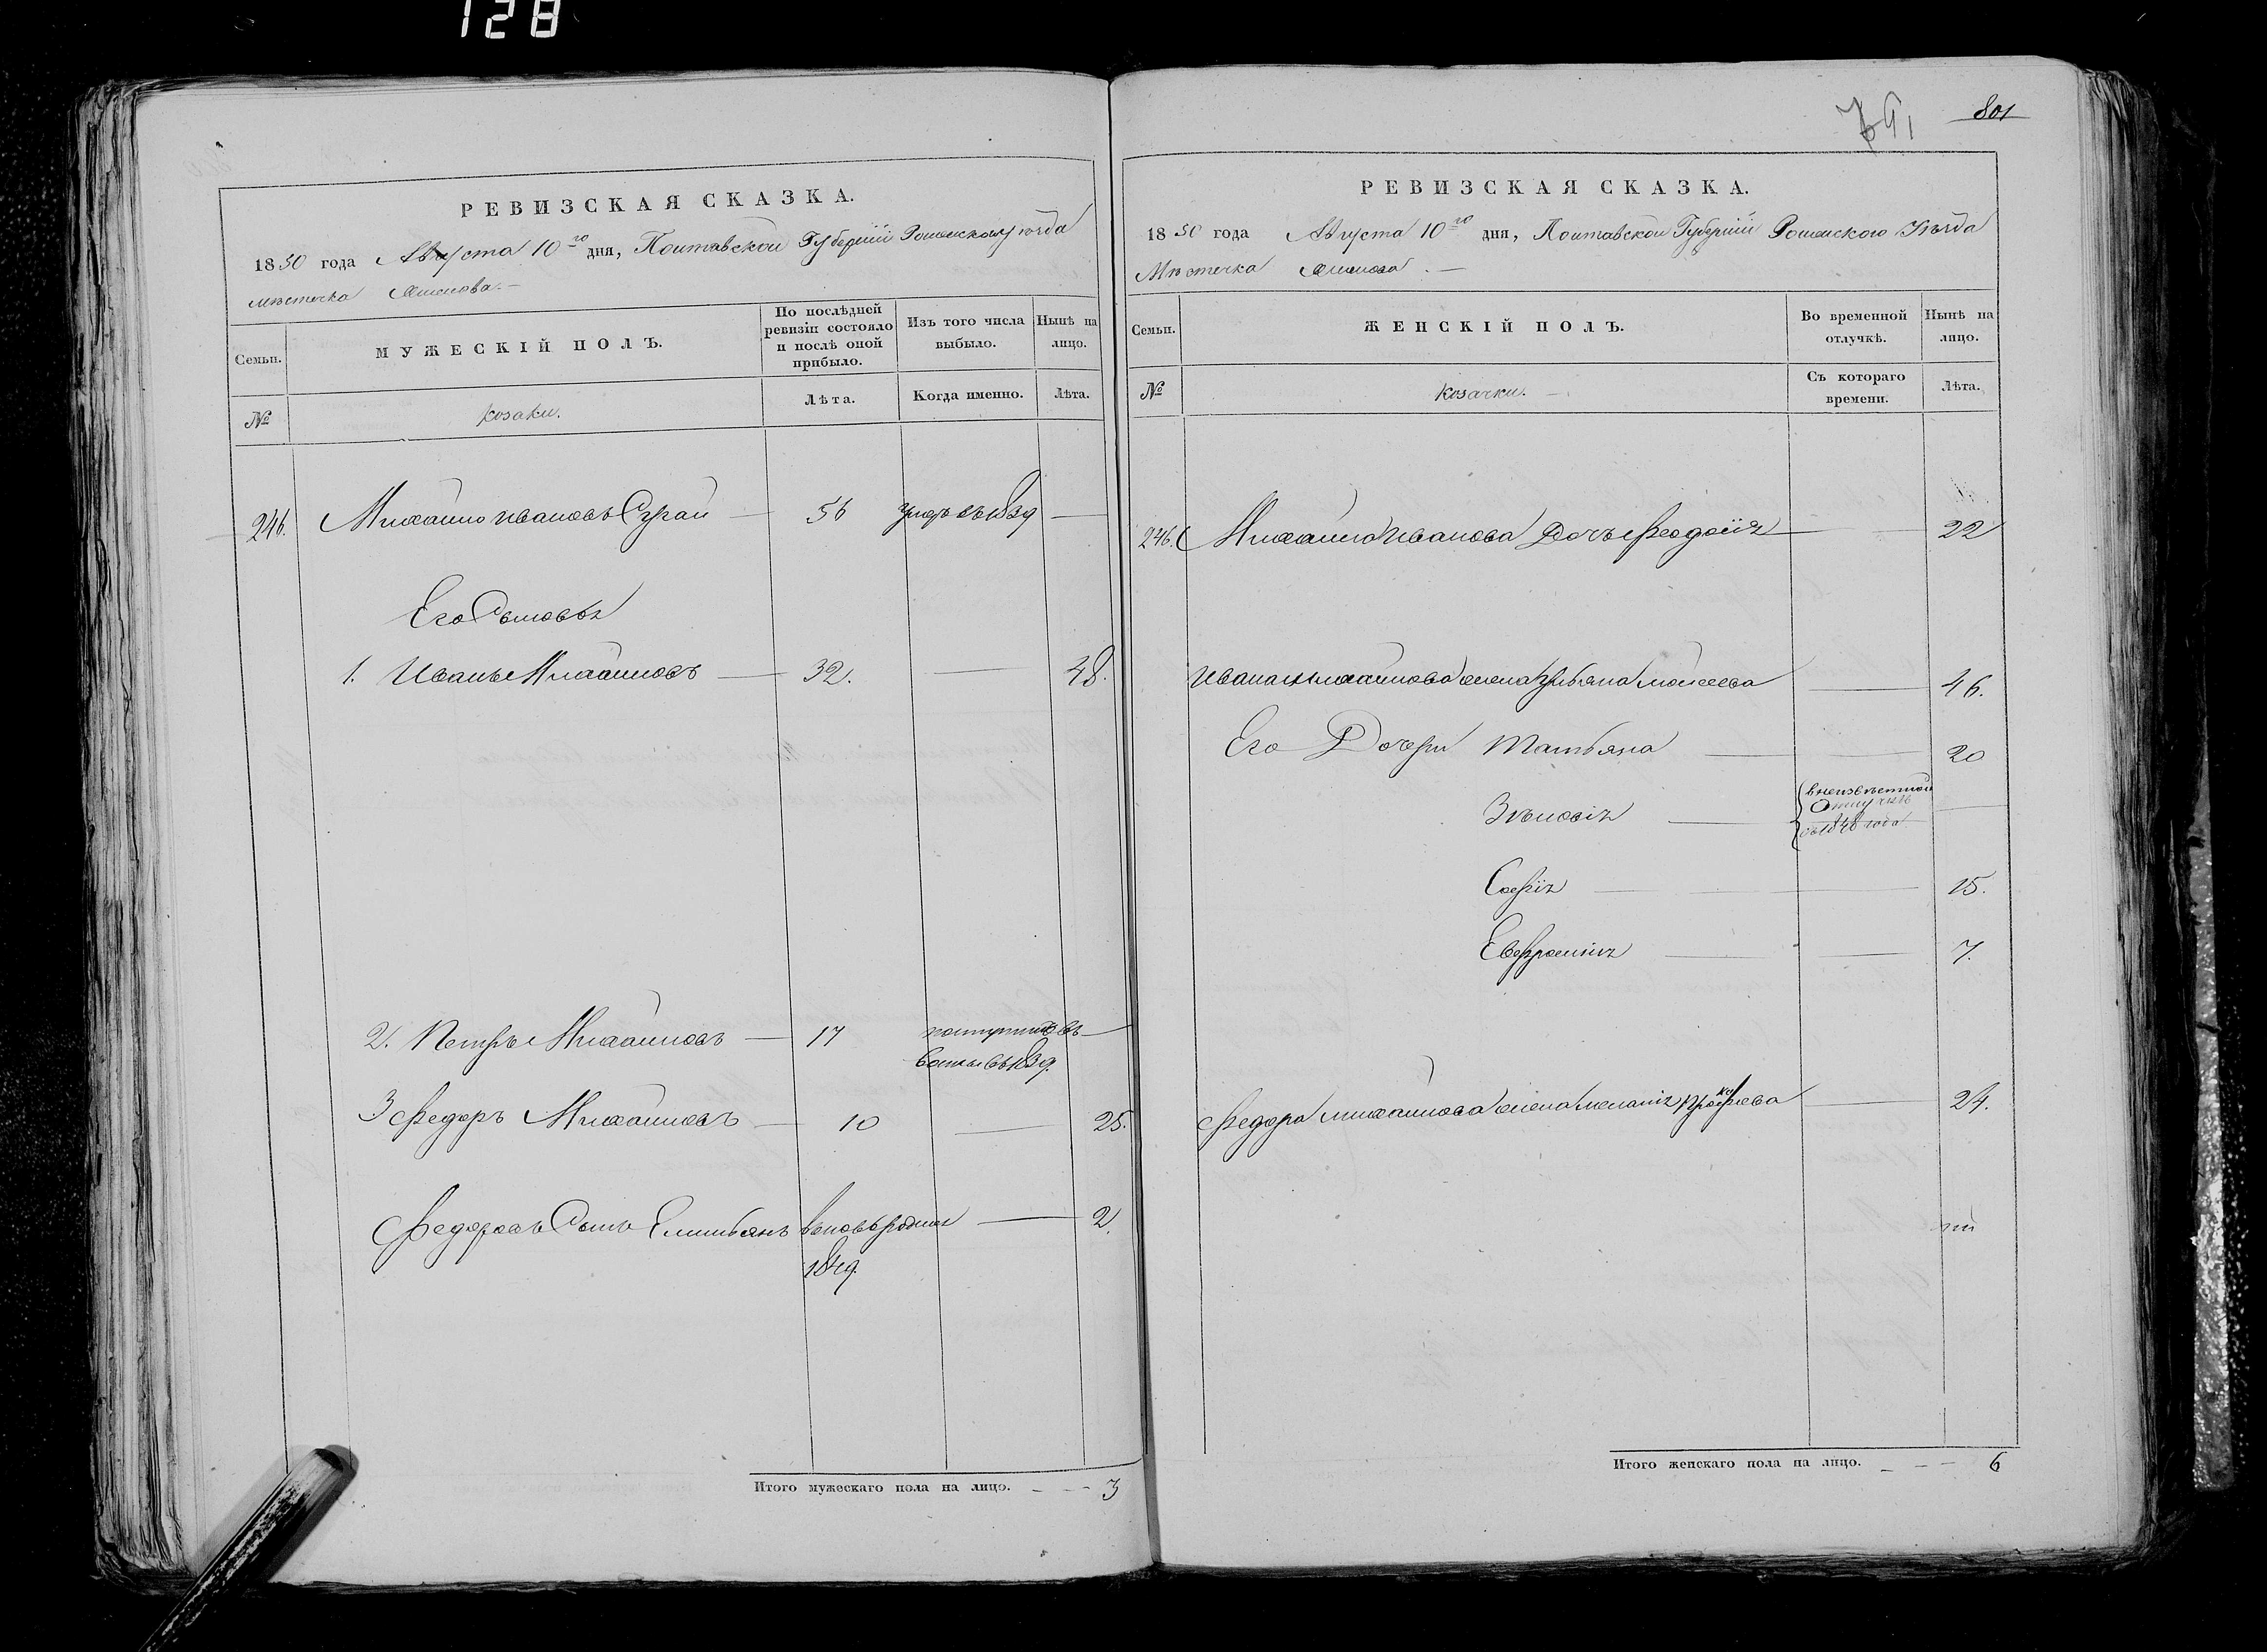 128
РЕВИЗСКАЯ СКАЗКА.
1850 года Августа 10го дня, Полтавской Губернiи Роменского уѣзда
мѣстечка
Семьи.
МУЖЕСКІЙ ПОЛЪ.
По послѣдней ревизіи состояло и послѣ оной прибыло.
Изъ того числа выбыло.
Нынѣ на лицо.
№
козаки.
Лѣта.
Когда именно.
Лѣта.
246. Михайло Ивановъ 56 умеръ въ 1839
Его Сыновья
1. Иванъ Михайловъ 32. 48.
2. Петръ Михайловъ 17 поступилъ въ
въ 1839.
3 Федоръ Михайловъ 10 25.
Федоровъ Сынъ Емильянъ вновь рожден 2.
1849.
Итого мужескаго пола на лицо. 3
801
РЕВИЗСКАЯ СКАЗКА.
1850 года Августа 10го дня, Полтавской Губернiи Роменского Уѣзда
Мѣстечка
Семьи.
ЖЕНСКІЙ ПОЛЪ.
Во временной отлучкѣ.
Нынѣ на лицо.
№
козачки.
Съ котораго времени.
Лѣта.
246. Михайла Иванова Дочь Феодосія 22
Ивана Михайлова жена Ульяна Моисеева 46.
Его Дочери Татьяна 20
Зѣновія в неизвѣстной
Отлучкѣ
съ 1848 года
Софія 15.
Евфросинія 7.
Федора Михайлова жена Меланія 24.
Итого женскаго пола на лицо. 6